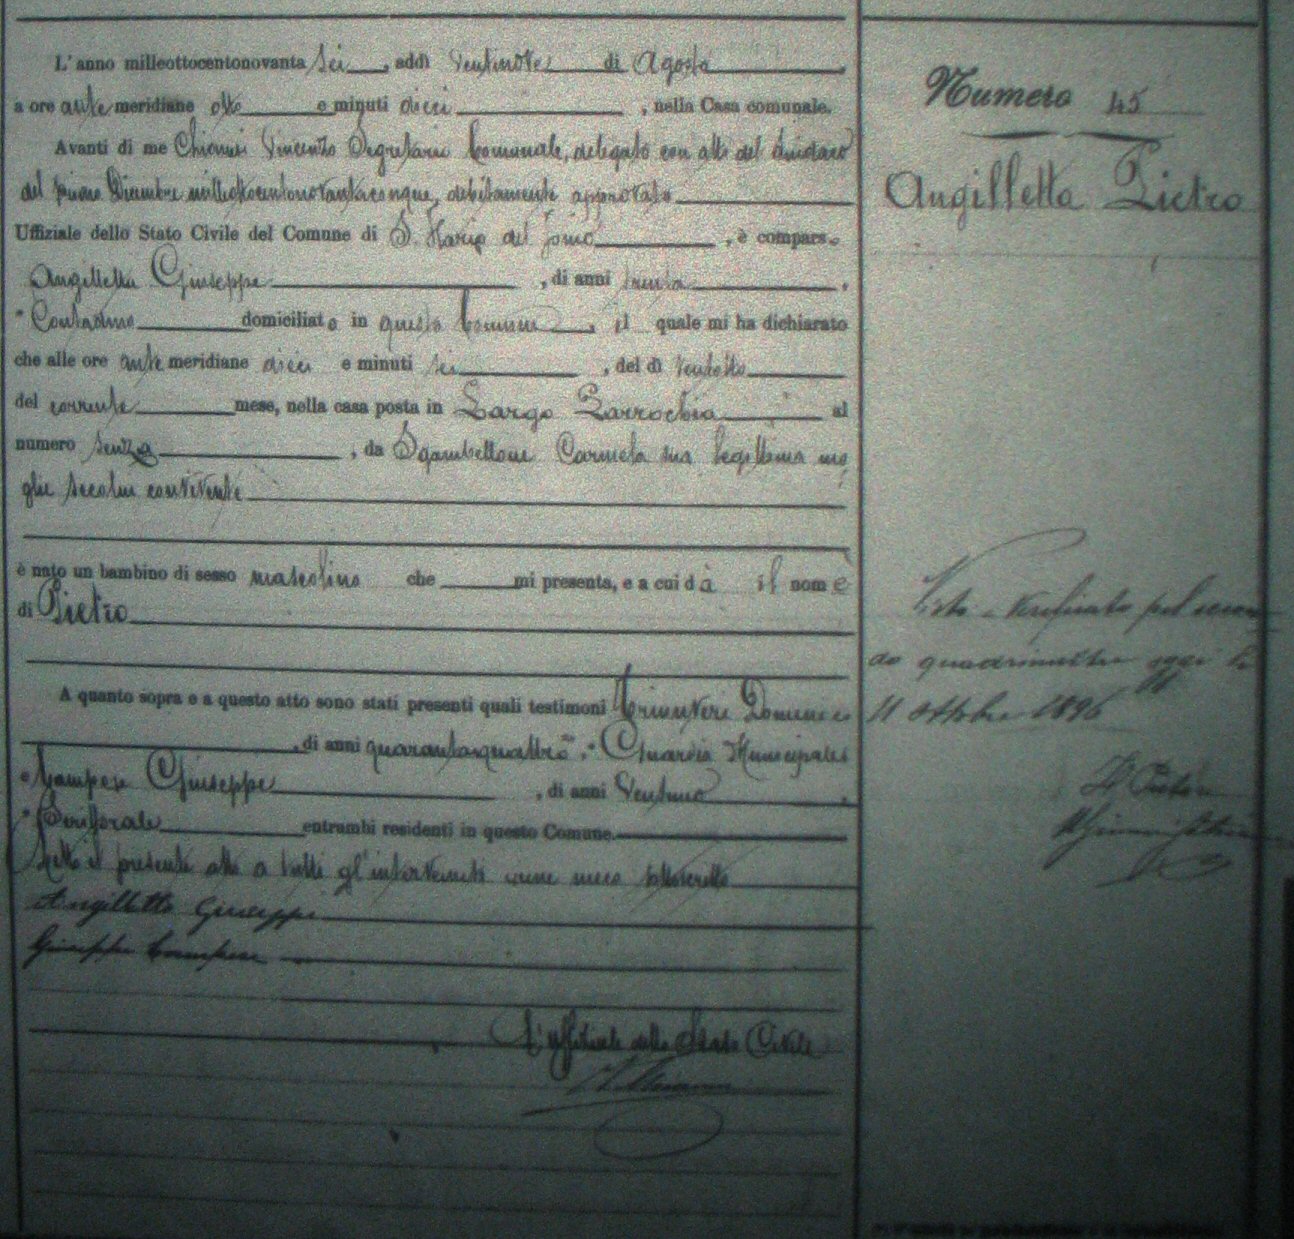 L'anno milleottocentonovanta sei, addì ventinove di Agosto,
a ore ante meridiane otto e minuti dieci, nella Casa comunale.
Avanti di me Vincenzo Segretario Comunale, delegato con atto del Sindaco
del primo Dicembre debitamente approvato
Uffiziale dello Stato Civile del Comune di S. Maria del , è comparso
Angilletta Giuseppe, di anni trenta,
Contadino domiciliato in questo Comune, il quale mi ha dichiarato
che alle ore ante meridiane dieci e minuti sei, del dì ventotto
del corrente mese, nella casa posta in Largo Parrochia al
numero senza, da Sgambettone Carmela sua legittima mo
glie secolui convivente
è nato un bambino di sesso mascolino che mi presenta, e a cui dà il nome
di Pietro
A quanto sopra e a questo atto sono stati presenti quali testimoni Domenico
, di anni quarantaquattro, Guardia Municipale
e Campese Giuseppe, di anni ventuno,
entrambi residenti in questo Comune.
Letto il presente atto a tutti gl'intervenuti viene meco sottoscritto
Angilletta Giuseppe
Giuseppe Campese
L'uffiziale dello Stato Civile
Numero 45
Angilletta Pietro
Visto e verificato pel secon
do quadrimestre oggi li
11 Ottobre 1896
Il Pretore